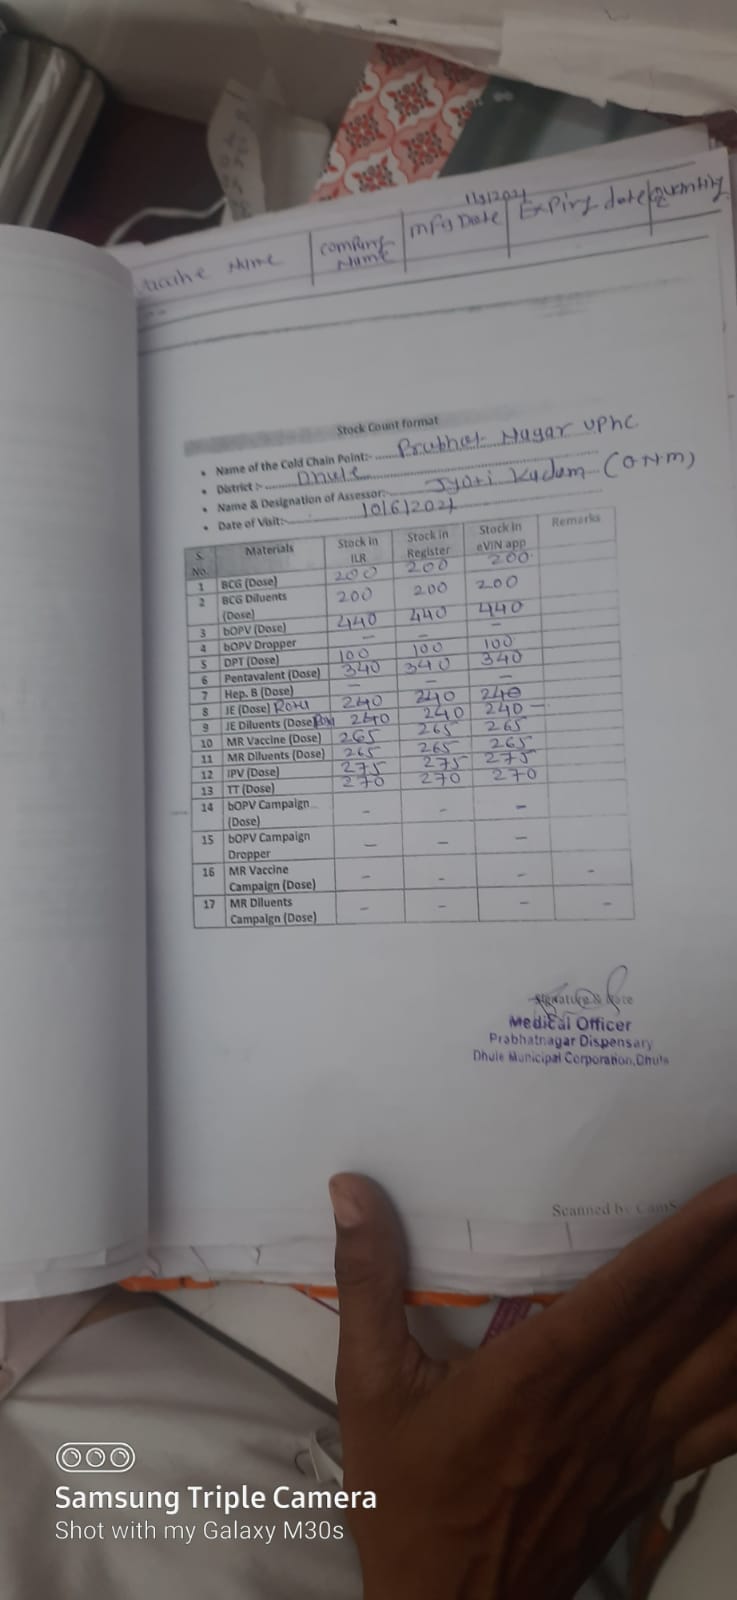 11/3/2021
Name company Name Mfg Date Expiry date quantity
Stock Count format
• Name of the Cold Chain Point:- Prabhat Nagar UPHC
• District :- Dhule
• Name & Designation of Assessor:- Jyoti Kadam (ANM)
• Date of Visit:- 10/6/2021
S. No. Materials Stock in ILR Stock in Register Stock in eVIN app Remarks
1 BCG (Dose) 200 200 200
2 BCG Diluents (Dose) 200 200 200
3 bOPV (Dose) 440 440 440
4 bOPV Dropper - - -
5 DPT (Dose) 100 100 100
6 Pentavalent (Dose) 340 340 340
7 Hep. B (Dose) - - -
8 JE (Dose) Rota 240 240 240
9 JE Diluents (Dose) Rota 240 240 240 -
10 MR Vaccine (Dose) 265 265 265
11 MR Diluents (Dose) 265 265 265
12 IPV (Dose) 275 275 275
13 TT (Dose) 270 270 270
14 bOPV Campaign (Dose) - - -
15 bOPV Campaign Dropper - - -
16 MR Vaccine Campaign (Dose) - - - -
17 MR Diluents Campaign (Dose) - - - -
Signature & Date
Medical Officer
Prabhatnagar Dispensary
Dhule Municipal Corporation, Dhule
Scanned by CamS
Samsung Triple Camera
Shot with my Galaxy M30s